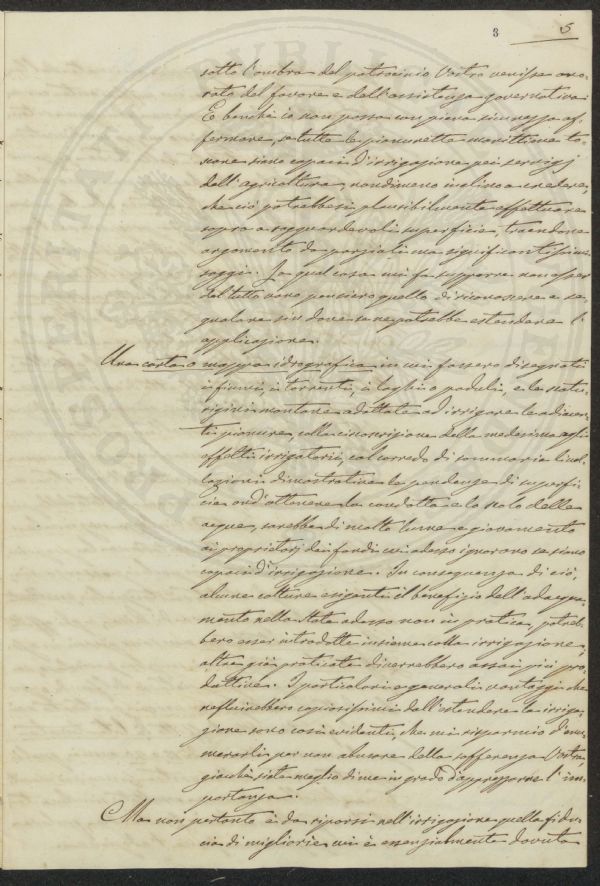 3 5
sotto l'ombra del patrocinio Vostro venisse ono-
rata del favore e dell'assistenza governativa.
E benchè io non possa con piena sicurezza af-
fermare, se tutte le pianurette marittime to-
scane siano capaci d'irrigazione pei servigj
dell'agricoltura, nondimeno inclino a credere,
che ciò potrebbesi plausibilmente effettuare
sopra a ragguardevoli superficie, traendone
argomento da parziali ma significantissimi
saggi. La qual cosa mi fa supporre non esser
del tutto vano pensiero quello di riconoscere e se-
gnalare sin dove se ne potrebbe estendere l'
applicazione.
Una carta o mappa idrografica in cui fossero disegnati
i fiumi, i torrenti, i laghi o paduli, e le scatu-
rigini montane adattate ad irrigare le adiacen-
ti pianure, colla circoscrizione della medesima agli
effetti irrigatorii, col corredo di sommarie livel-
lazioni dimostrative le pendenze di superfi-
cie ond'ottenere la condotta e lo scolo delle
acque, sarebbe di molto lume e giovamento
ai proprietarj dei fondi cui adesso ignorano se siano
capaci d'irrigazione. In conseguenza di ciò,
alcune colture esigenti il beneficio dell'adacqua-
mento nella state adesso non in pratica, potreb-
bero esser introdotte insieme colla irrigazione,
altre già praticate diverrebbero assai più pro-
duttive. I particolari e generali vantaggi che
rifluirebbero copiosissimi dall'estendere la irriga-
zione sono così evidenti, che mi risparmio d'enu-
merarli per non abusare della sofferenza Vostra,
giacchè siete meglio di me in grado d'apprezzarne l'im-
portanza.
Ma non pertanto è da riporsi nell'irrigazione quella fidu-
cia di migliorie cui è essenzialmente dovuta